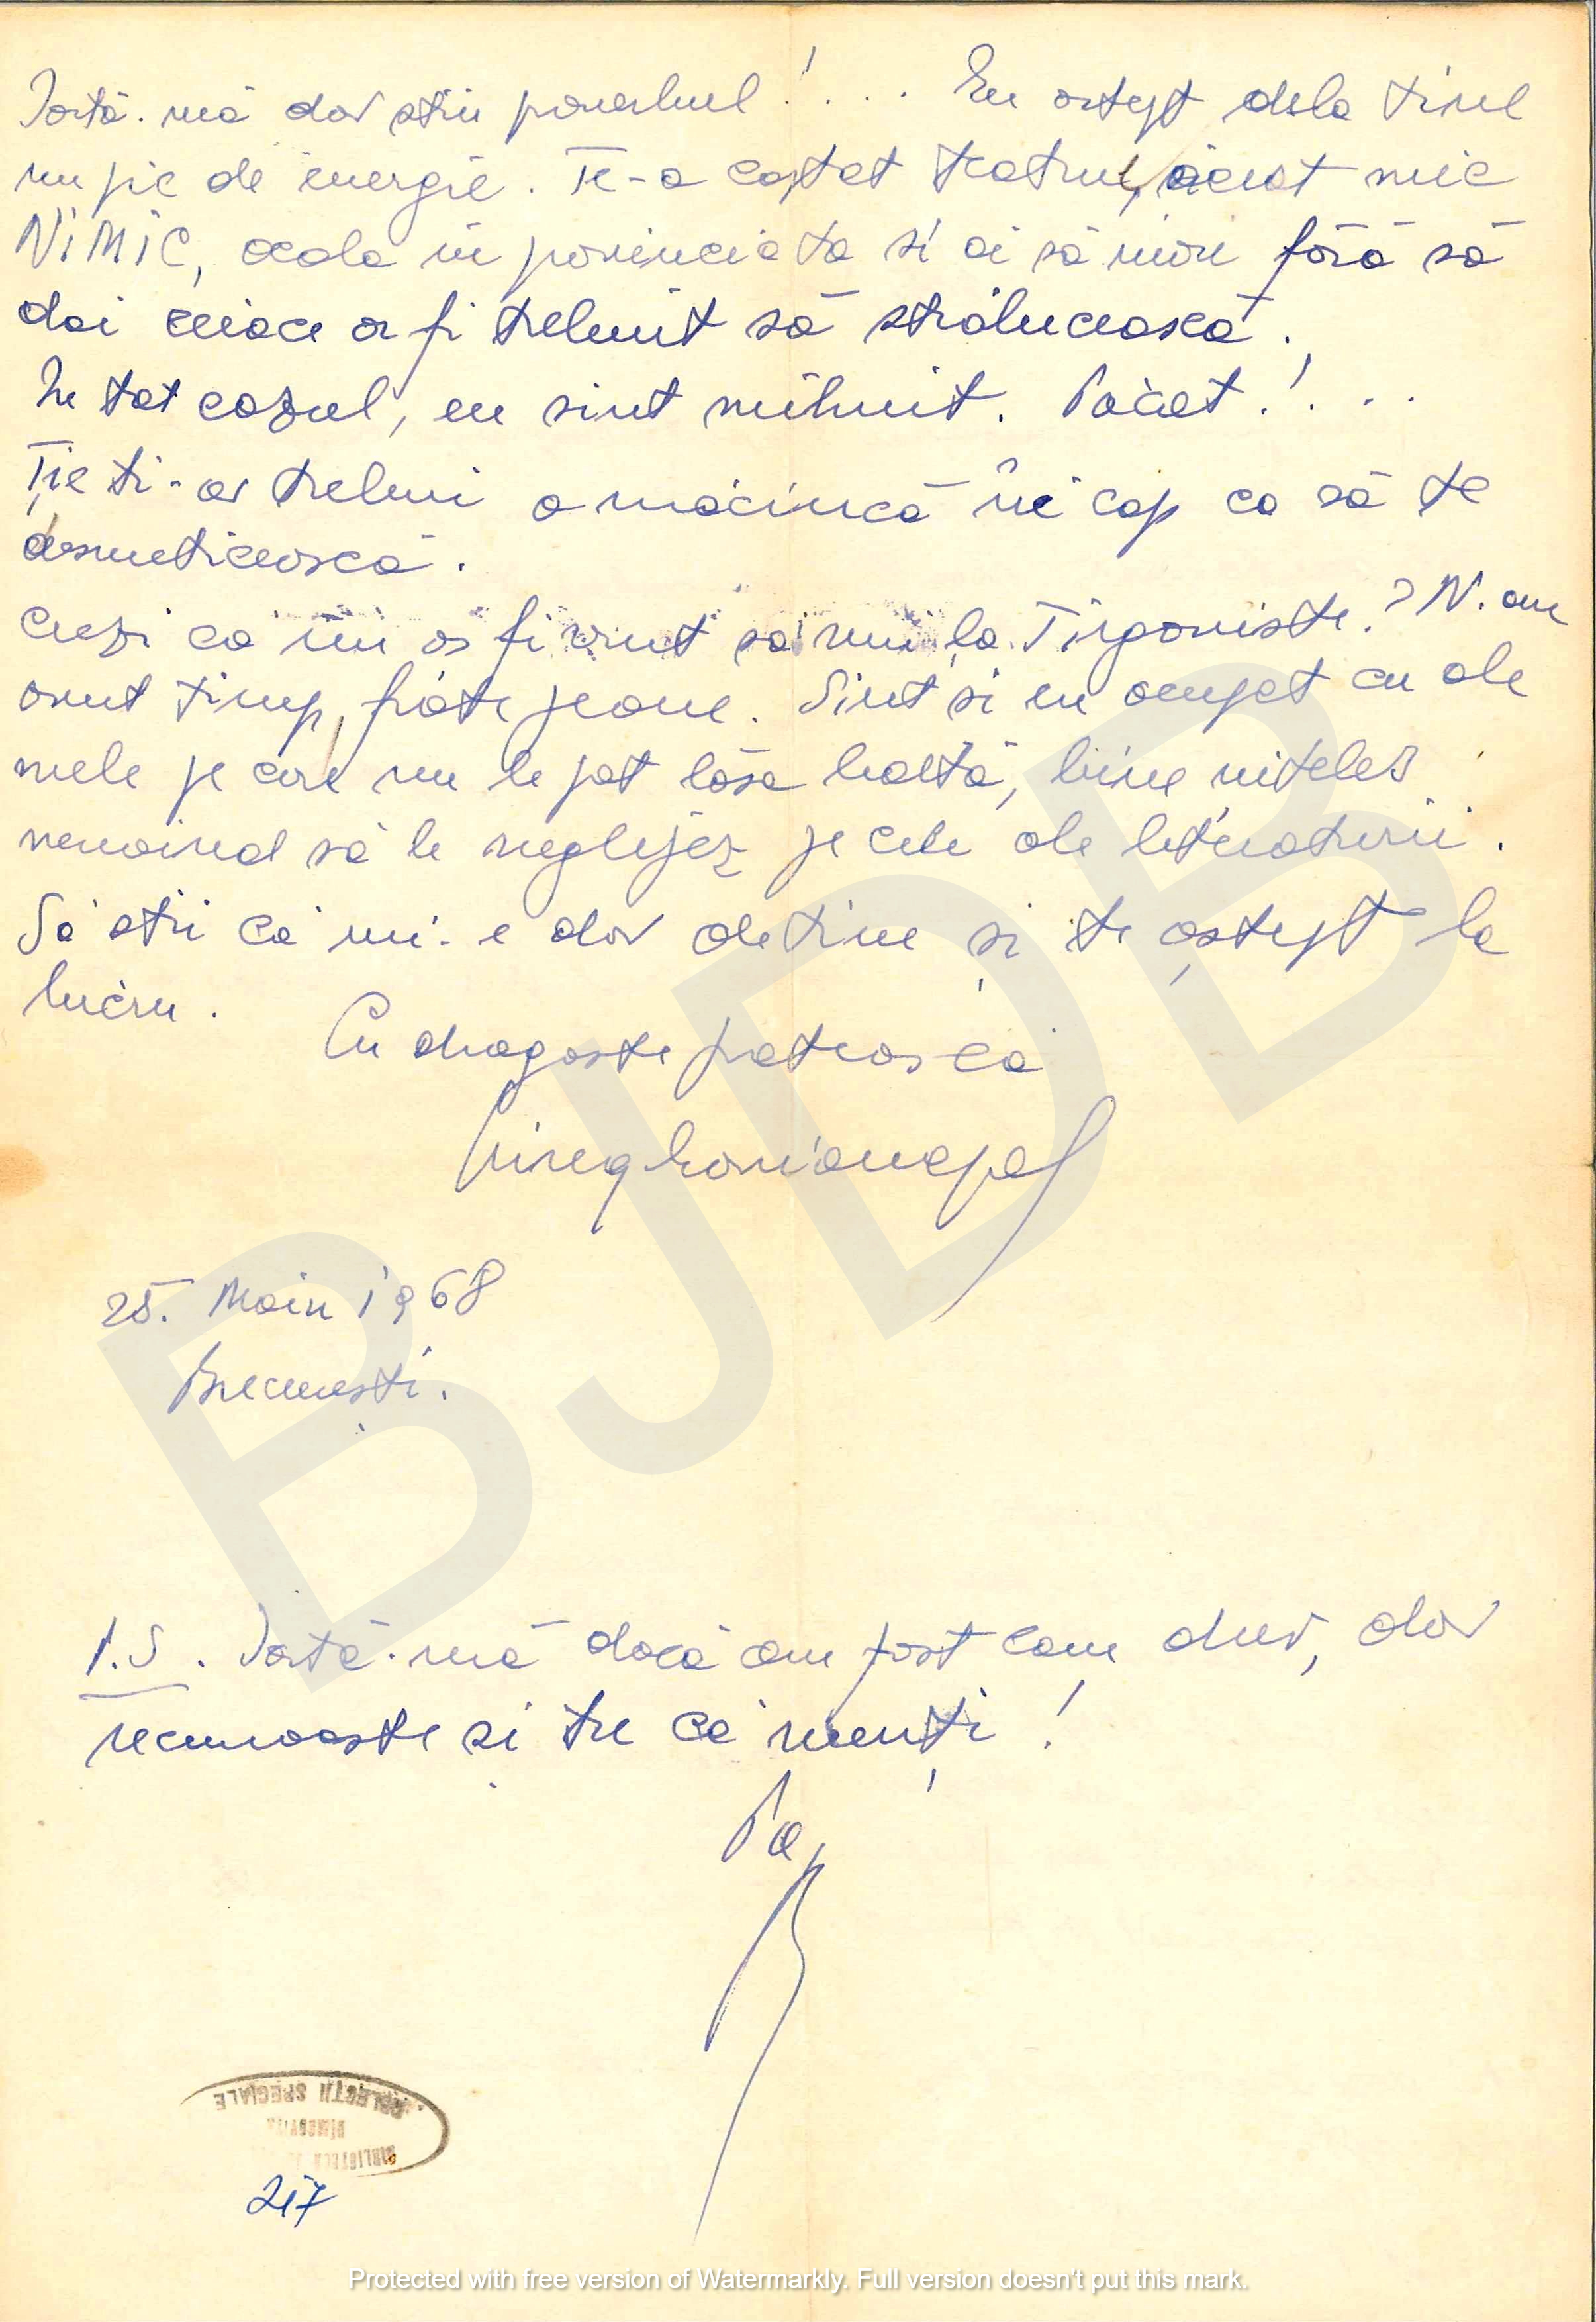 Iartă-mă dar știu proverbul!... Eu aștept dela tine
un pic de energie. Te-a captat teatrul, acest mic
NIMIC, acolo în provincia ta și ai să mori fără să
dai ceiace ar fi trebuit să strălucească.
În tot cazul, eu sînt mîhnit. Păcat!...
Ție ți-ar trebui o măciucă în cap ca să te
desmeticească.
Crezi că nu aș fi vrut să viu la Tîrgoviște? N-am
avut timp, frate Jeane. Sînt și eu ocupat cu ale
mele pe care nu le pot lăsa baltă, bine înțeles
nevoind să le neglijez pe cele ale literaturii.
Să știi că mi-e dor de tine și te aștept la
lucru.
Cu dragoste frățească
25. Maiu 1968
București.
P.S. Iartă-mă dacă am fost cam dur, dar
recunoaște și tu că meriți!
Pa,
COLECȚII SPECIALE
DÎMBOVIȚA
BIBLIOTECA
217
BJDB
Protected with free version of Watermarkly. Full version doesn't put this mark.